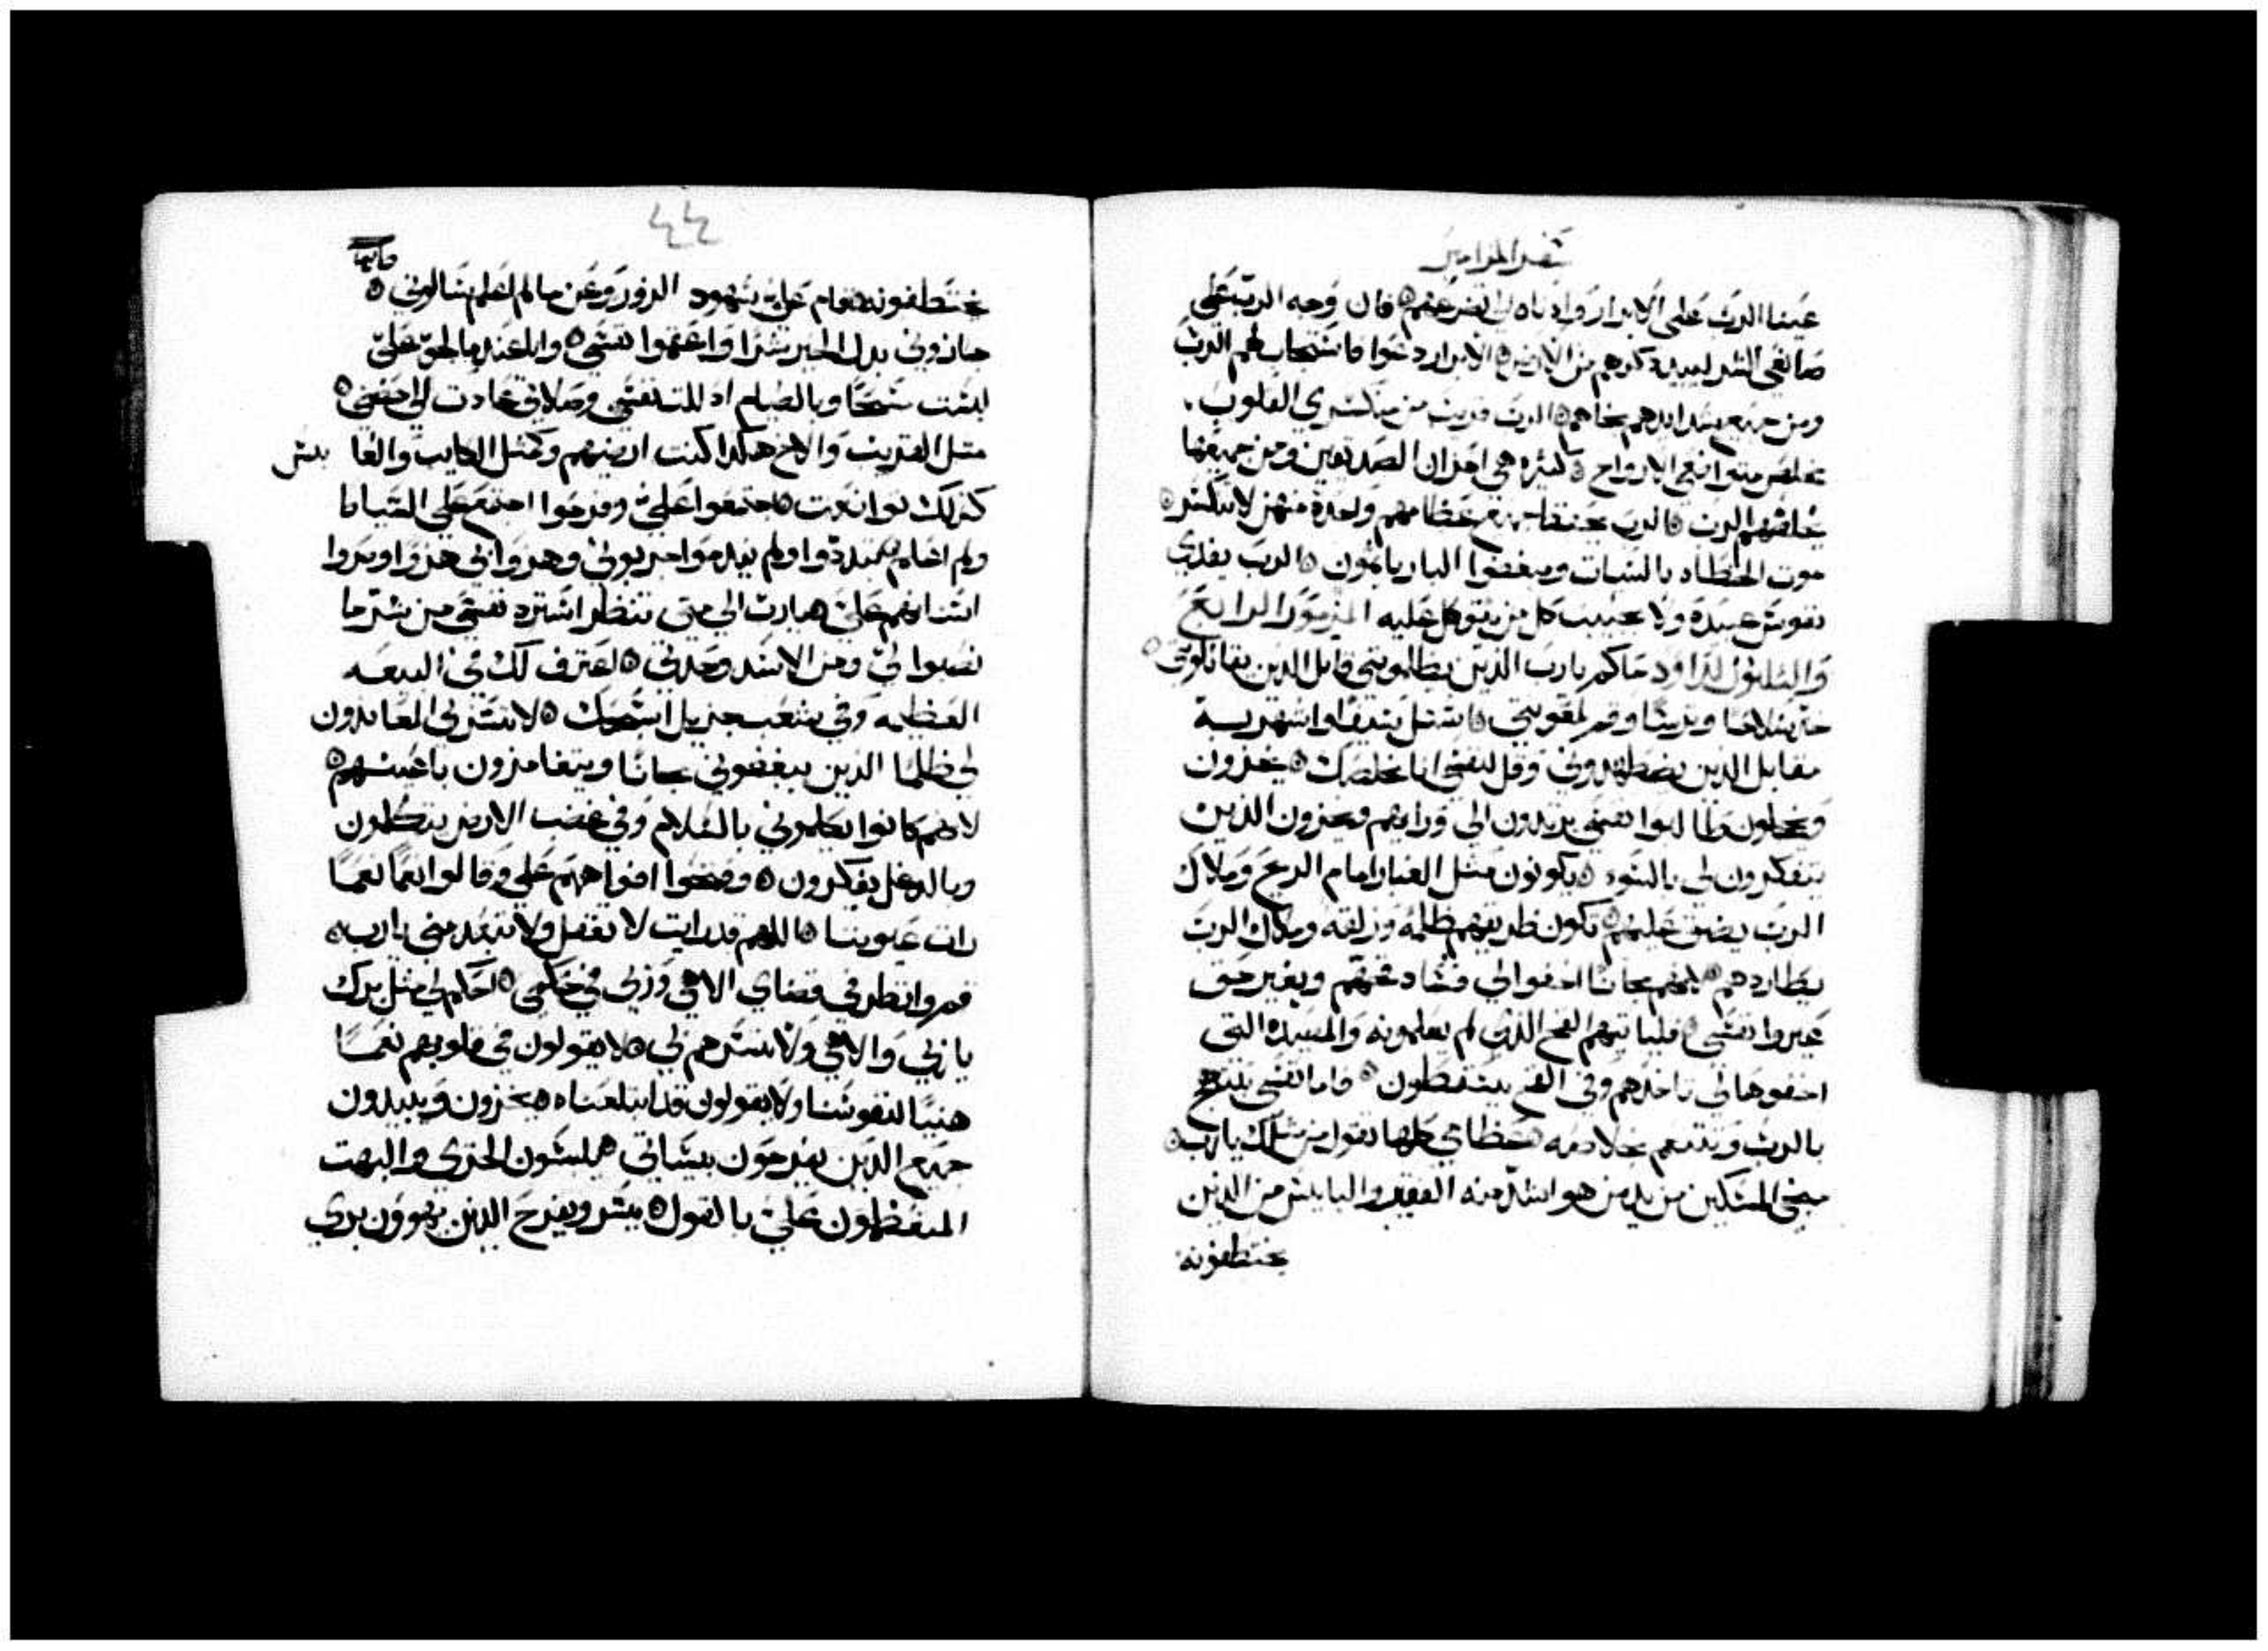 سفر المزامير
عينا الرب على الابرار واذناه الى تضرعهم ۞ فان وجه الرب على
صانعي الشر ليبيد ذكرهم من الارض ۞ الابرار دعوا فاستجاب لهم الرب
ومن جميع شدايدهم نجاهم ۞ الرب قريب من منكسري القلوب .
يخلص متواضعي الارواح ۞ كثيره هي احزان الصديقين ومن جميعها
يخلصهم الرب ۞ الرب يحفظ جميع عظامهم وواحدة منهن لا تنكسر ۞
موت الخطاه بالسيات ومبغضوا البار ياتمون ۞ الرب يفدي
نفوس عبيده ولا يخيب كل من يتوكل عليه المزمور الرابع
والثلثون لداود حاكم يارب الذين يظلموني قابل الذين يقاتلوني ۞
خذ سلاحا وترسا وقم لمعونتي ۞ استل سيفا واشهره
مقابل الذين يضطهدوني وقل لنفسي انا مخلصك ۞ يخزون
ويخجلون طالبوا نفسي يرتدون الى ورايهم ويخزون الذين
يتفكرون لي بالسوء ۞ يكونون مثل الغبار امام الريح وملاك
الرب يضيق عليهم ۞ تكون طريقهم ظلمه وزلقه وملاك الرب
يطاردهم ۞ لانهم مجانا اخفوا لي فساد فخهم وبغير حق
عيروا نفسي ۞ فلياتيهم الفخ الذي لم يعلمونه والمصيده التي
اخفوها لي تاخذهم وفي الفخ يسقطون ۞ واما نفسي تبتهج
بالرب وتتنعم بخلاصه ۞ عظامي كلها تقول من مثلك يارب ۞
منجي المسكين من يد من هو اشد منه الفقير والبايس من الذين
يختطفونه
٤٤
يختطفونه ۞ قام علي شهود الزور وعن ما لم اعلم سالوني ۞
جازوني بدل الخير شرا واعقموا نفسي ۞ وانا عند ما لجو علي
لبست مسحا وبالصيام اذللت نفسي وصلاتي عادت الى حضني ۞
مثل القريب والاخ هكذا كنت ارضيهم وكمثل الكايب والعابس
كذلك تواضعت ۞ اجتمعوا علي وفرحوا اجتمع علي السياط
ولم اعلم تبددوا ولم يندموا جربوني وهزوا بي هزوا وصروا
اسنانهم علي ۞ يارب الى متى تنظر استرد نفسي من شر ما
نصبوا لي ومن الاسد وحدتي ۞ اعترف لك في البيعه
العظيمه وفي شعب جزيل اسبحك ۞ لا تسر بي المعاندون
لي ظلما الذين يبغضوني مجانا ويتغامزون باعينهم ۞
لانهم كانوا يكلموني بالسلام وفي غضب الارض يتكلمون
وبالدغل يفكرون ۞ وفتحوا افواههم علي وقالوا نعما نعما
رات عيوننا ۞ اللهم قد رايت لا تغفل ولا تبتعد مني يارب ۞
قم وانظر في قضاي الاهي وربي في حكمي ۞ احكم لي مثل برك
يا ربي والاهي ولا تسرهم بي ۞ لا يقولون في قلوبهم نعما
هنيا لنفوسنا ولا يقولون قد ابتلعناه ۞ يخزون ويبيدون
جميع الذين يفرحون بسياتي ۞ يلبسون الخزي والبهت
المتعظمون علي بالقول ۞ يسر ويفرح الذين يهوون بري